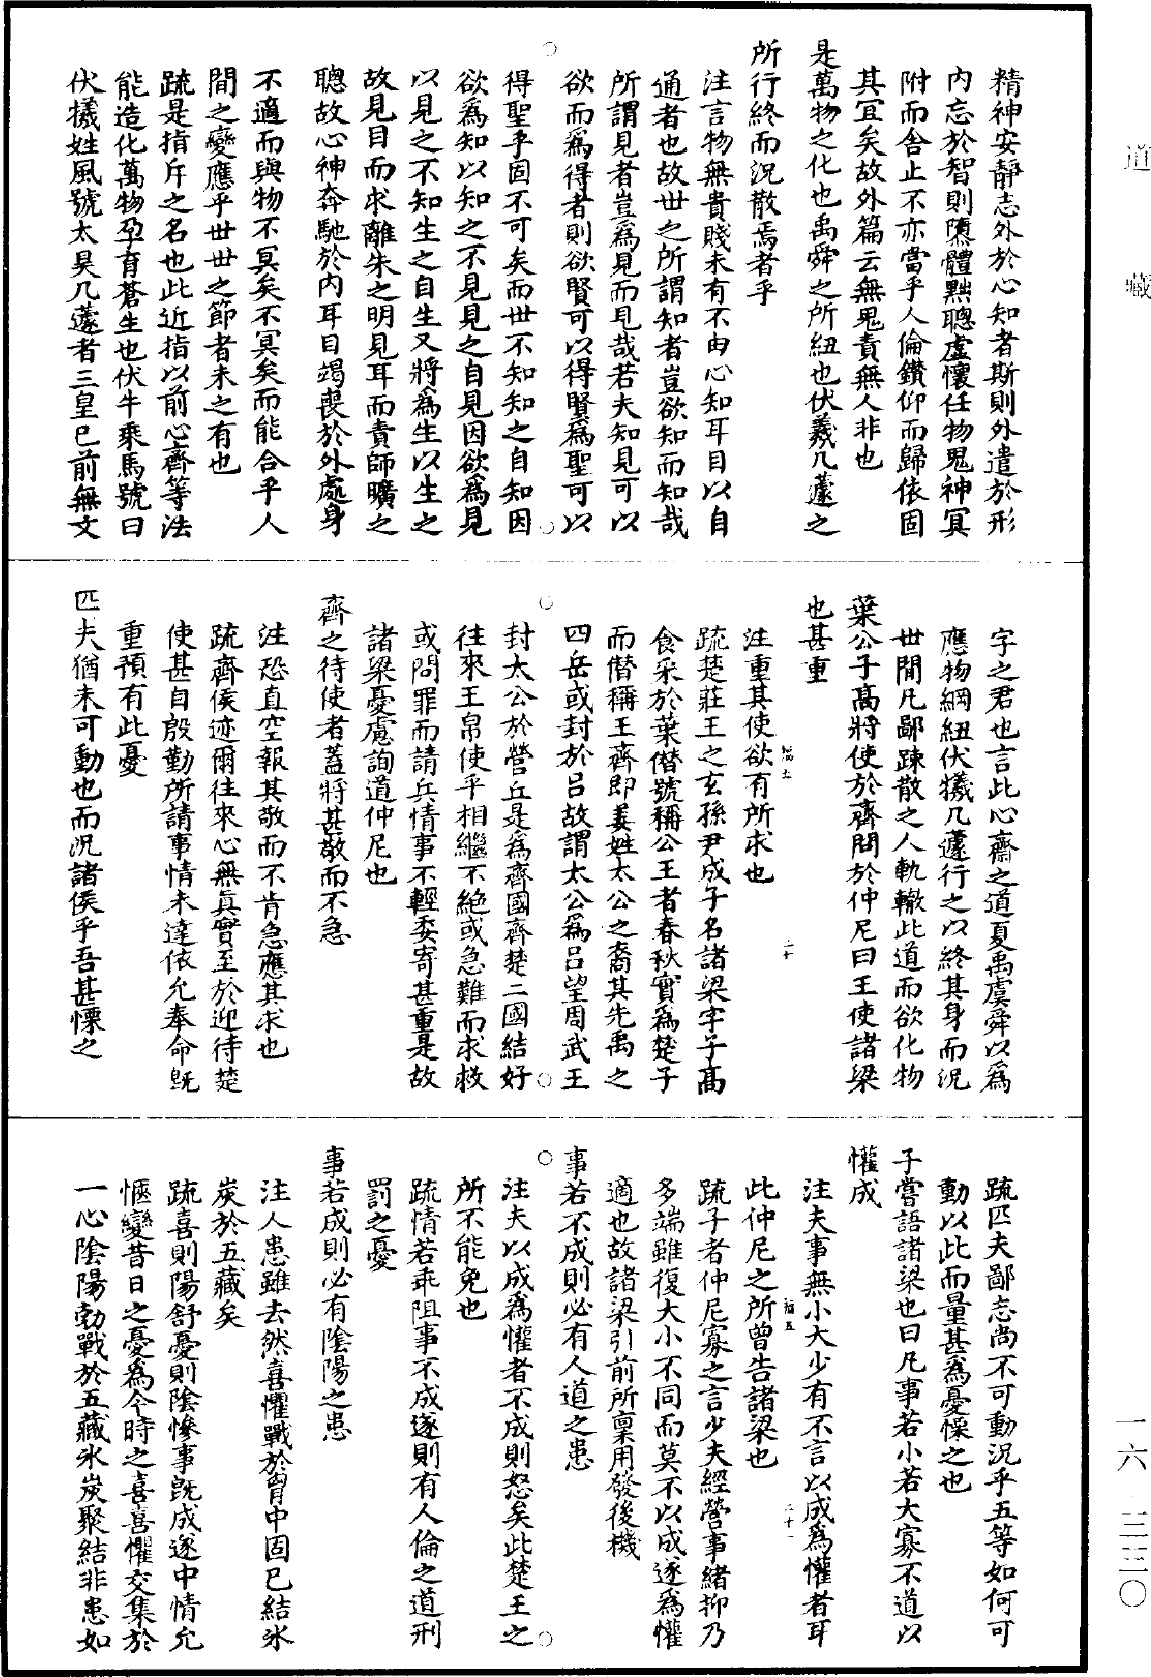 道藏
精神安靜志外於心知者斯則外遣於形
內忘於智則隳體黜聰虛懷任物鬼神冥
附而舍止不亦當乎人倫鑽仰而歸依固
其宜矣故外篇云無鬼責無人非也
是萬物之化也禹舜之所紐也伏羲几蘧之
所行終而況散焉者乎
注言物無貴賤未有不由心知耳目以自
通者也故世之所謂知者豈欲知而知哉
所謂見者豈為見而見哉若夫知見可以
欲而為得者則欲賢可以得賢為聖可以
得聖乎固不可矣而世不知知之自知因
欲為知以知之不見見之自見因欲為見
以見之不知生之自生又將為生以生之
故見目而求離朱之明見耳而責師曠之
聰故心神奔馳於內耳目竭喪於外處身
不適而與物不冥矣不冥矣而能合乎人
間之變應乎世世之節者未之有也
疏是指斥之名也此近指以前心齊等法
能造化萬物孕育蒼生也伏牛乘馬號曰
伏犧姓風號太昊几蘧者三皇已前無文
字之君也言此心齋之道夏禹虞舜以為
應物綱紐伏犧几蘧行之以終其身而況
世間凡鄙踈散之人軌轍此道而欲化物
葉公子高將使於齊問於仲尼曰王使諸梁
也甚重
注重其使欲有所求也
疏楚莊王之玄孫尹成子名諸梁字子高
食采於葉僭號稱公王者春秋實為楚子
而僭稱王齊即姜姓太公之裔其先禹之
四岳或封於呂故謂太公為呂望周武王
封太公於營丘是為齊國齊楚二國結好
往來王帛使乎相繼不絕或急難而求救
或問罪而請兵情事不輕委寄甚重是故
諸梁憂慮詢道仲尼也
齊之待使者蓋將甚敬而不急
注恐直空報其敬而不肯急應其求也
疏齊侯迹爾往來心無真實至於迎待楚
使甚自殷勤所請事情未達依允奉命既
重預有此憂
匹夫猶未可動也而況諸侯乎吾甚慄之
疏匹夫鄙志尚不可動況乎五等如何可
動以此而量甚為憂慄之也
子嘗語諸梁也曰凡事若小若大寡不道以
懽成
注夫事無小大少有不言以成為懽者耳
此仲尼之所曾告諸梁也
疏子者仲尼寡之言少夫經營事緒抑乃
多端雖復大小不同而莫不以成遂為懽
適也故諸梁引前所稟用發後機
事若不成則必有人道之患
注夫以成為懽者不成則怒矣此楚王之
所不能免也
疏情若乖阻事不成遂則有人倫之道刑
罰之憂
事若成則必有陰陽之患
注人患雖去然喜懼戰於胷中固已結冰
炭於五藏矣
疏喜則陽舒憂則陰慘事既成遂中情允
愜變昔日之憂為今時之喜喜懼交集於
一心陰陽勃戰於五藏冰炭聚結非患如
一六 三三〇